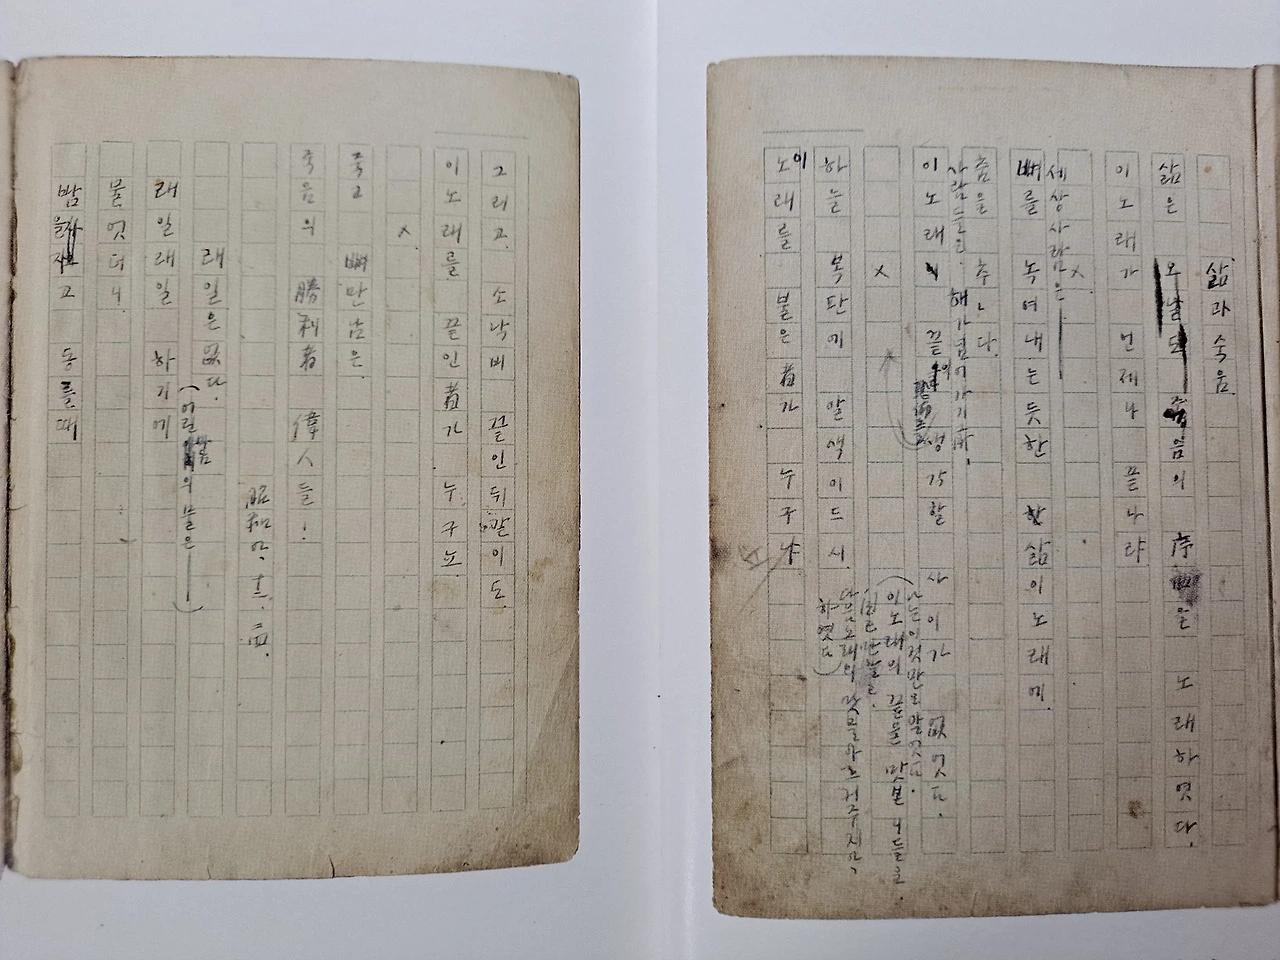 삶과죽음
삶은 오날도 죽음의 序曲을 노래하엿다.
이노래가 언제나 끝나랴
×
세상사람은
뼈를 녹여내는듯한 삶이노래에
춤을 추ㄴ다.
사람들은 해가넘어가기前
이노래 끝의 생각할 사이가 없엇다.
(나는이것만은알엇다.
이노래의 끝을 맛본 니들은
自己만알고
다음노래의 맛을알으켜주지아
하엿다)
×
하늘 복판에 알색이드시
이 노래를 불은者가 누구냐
그리고 소낙비 끝인뒤같이도
이노래를 끝인者가 누구뇨.
×
죽고 뼈만남은
죽음의 勝利者 偉人들!
昭和
래일은없다.
(어린 의 물은——)
래일래일 하기에
물엇더니.
밤을자고 동틀때